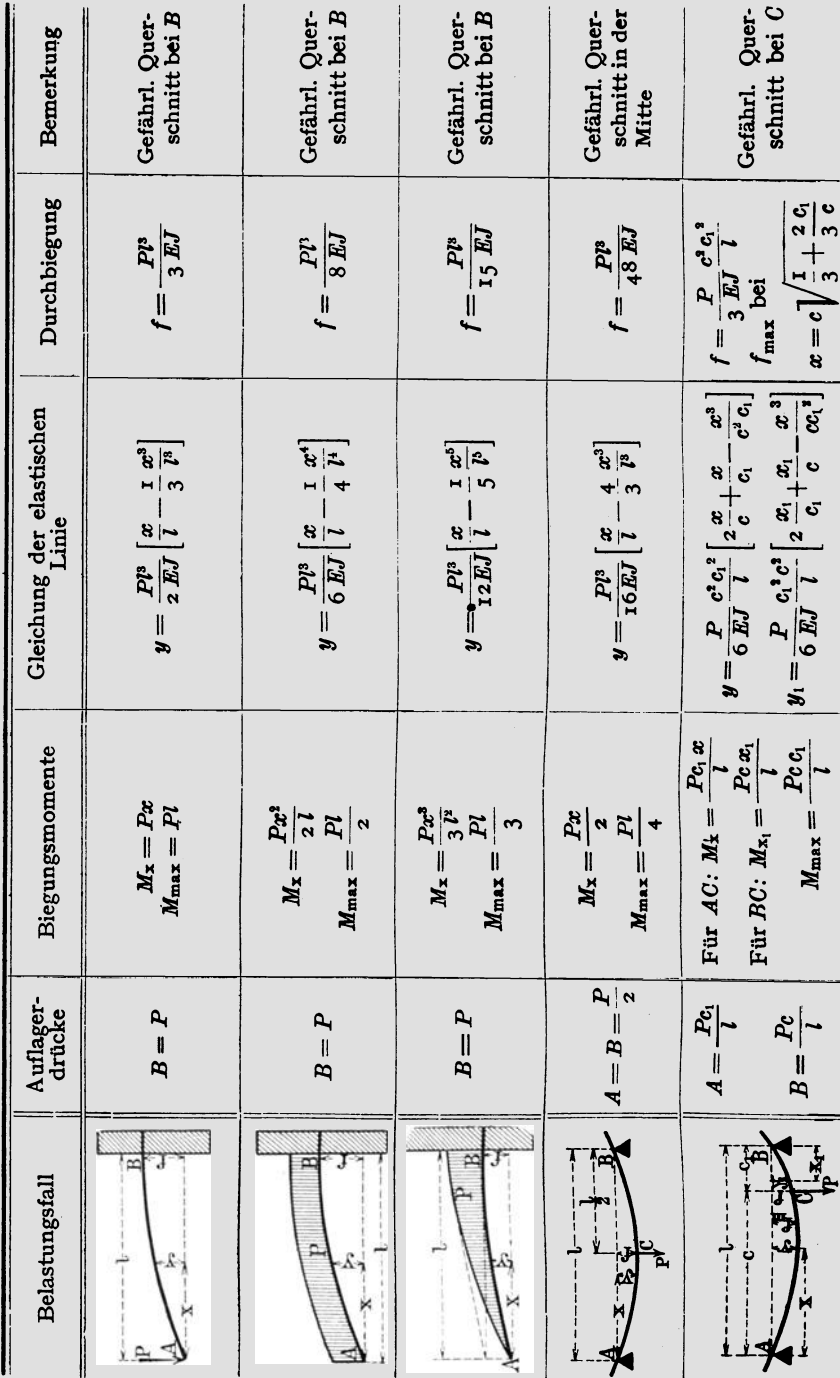 Belastungsfall | Auflager-drücke | Biegungsmomente | Gleichung der elastischen Linie | Durchbiegung | Bemerkung
P A B l x y f
B = P
M_x = Px
M_max = Pl
y = Pl³/2 EJ [x/l − 1/3 x³/l³]
f = Pl³/3 EJ
Gefährl. Quer-
schnitt bei B
P A B l x y f
B = P
M_x = Px²/2 l
M_max = Pl/2
y = Pl³/6 EJ [x/l − 1/4 x⁴/l⁴]
f = Pl³/8 EJ
Gefährl. Quer-
schnitt bei B
P A B l x y f
B = P
M_x = Px³/3 l²
M_max = Pl/3
y = Pl³/12 EJ [x/l − 1/5 x⁵/l⁵]
f = Pl³/15 EJ
Gefährl. Quer-
schnitt bei B
A B C P l l/2 x y f
A = B = P/2
M_x = Px/2
M_max = Pl/4
y = Pl³/16 EJ [x/l − 4/3 x³/l³]
f = Pl³/48 EJ
Gefährl. Quer-
schnitt in der
Mitte
A B C P l c c₁ x x₁
A = Pc₁/l
B = Pc/l
Für AC: M_x = Pc₁ x/l
Für BC: M_x₁ = Pc x₁/l
M_max = Pc c₁/l
y = P/6 EJ c² c₁²/l [2 x/c + x/c₁ − x³/c² c₁]
y₁ = P/6 EJ c₁² c²/l [2 x₁/c₁ + x₁/c − x³/cc₁²]
f = P/3 EJ c² c₁²/l
f_max bei
x = c √(1/3 + 2 c₁/3 c)
Gefährl. Quer-
schnitt bei C